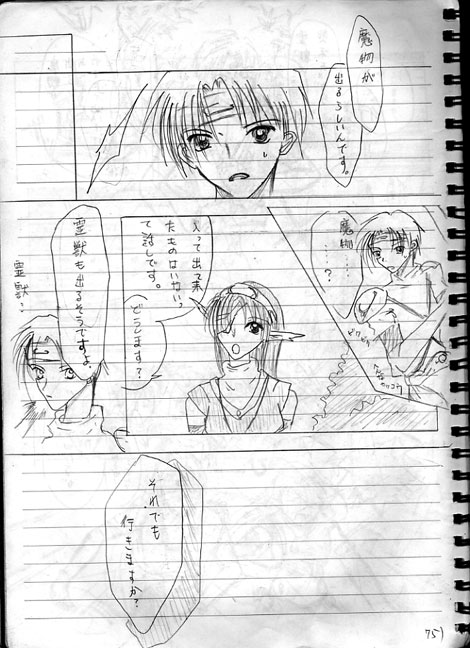 魔物が
出るらしいんです。
魔物……
……?
入って出て来
たものはいないっ
て話しです。
どうします?
霊獣も出るそうですよ。
霊獣?
それでも
行きますか?
75)